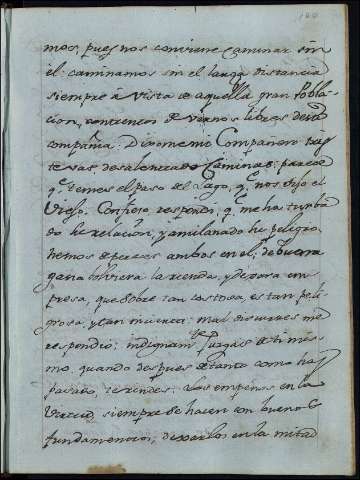 mos, pues nos conviene caminar sin
el: caminamos sin el larga distancia
siempre à vista de aquella gran Pobla-
cion, con recelo de vernos libres de su
compañia. Dixome mi Compañero: tris-
te vas, desalentado Caminas: parece
q.e temes el paso del Lago, q.e nos dijo el
Viejo. Confieso, respondi, q.e me ha turba-
do su relacion, y amilanado su peligro.
hemos de perecer ambos en el; de buena
gana bolviera la rienda, y dexara em-
presa, que sobre tan costosa, es tan peli-
grosa, y tan incierta: mal discurres me
respondió: indignam.te juzgas de ti mis-
mo, quando despues de tanto como has
pasado, te rindes. Los empeños en la
Virtud, siempre se hacen con buenos
fundamentos; dexarlos en la mitad